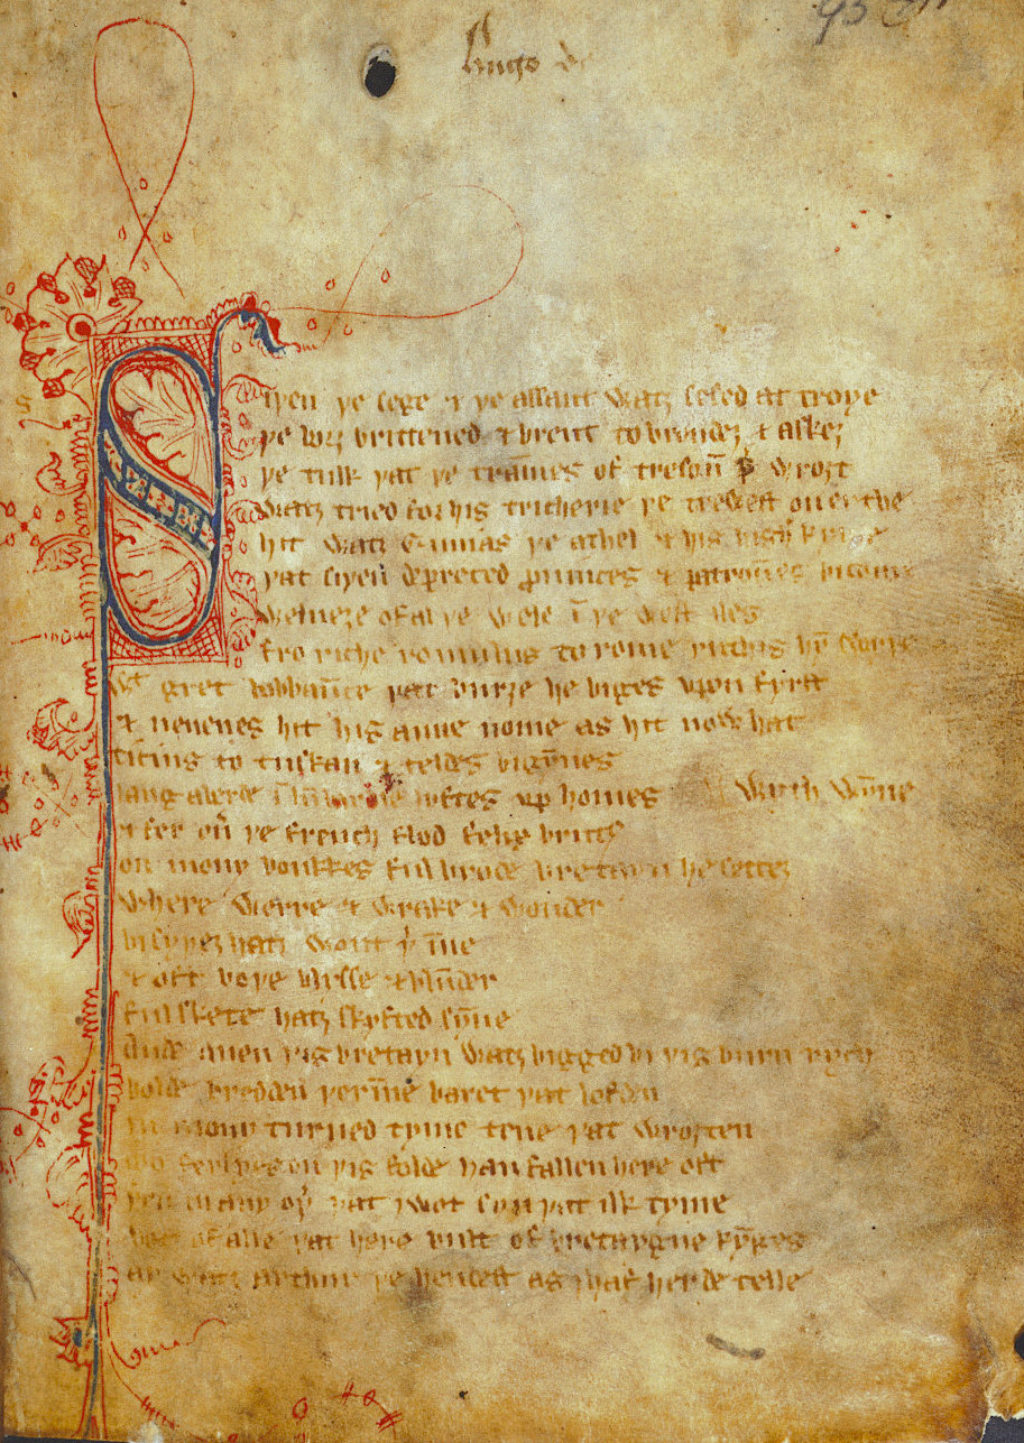 hugo de
95
Siþen þe sege & þe assaut watz sesed at troye
þe borȝ brittened & brent to brondeȝ & askez
þe tulk þat þe trāmes of tresoū þ̄ wroȝt
watz tried for his tricherie þe trewest on erthe
hit watz Ennias þe athel & his highe kynde
þat siþen depreced prouinces & patroūes bicome
welneȝe of al þe wele ī þe west iles
fro riche romulus to rome ricchis hȳ swyþe
wt gret bobbaūce þat burȝe he biges vpon fyrst
& neuenes hit his aune nome as hit now hat
ticius to tuskan & teldes bigȳnes
langaberde ī lūbardie lyftes vp homes wyth wȳne
& fer ou̾ þe french flod felix brutus
on mony bonkkes ful brode bretayn he settez
where werre & wrake & wonder
bi syþez hatz wont þ̾ īne
& oft boþe blysse & blūder
ful skete hatz skyfted sȳne
Ande quen þis bretayn watz bigged bi þis burn rych
bolde bredden þer īne baret þat lofden
in mony turned tyme tene þat wroȝten
mo ferlyes on þis folde han fallen here oft
þen in any oþ̾ þat I wot syn þat ilk tyme
bot of alle þat here bult of bretaygne kȳges
ay watz arthur þe hendest as I haf herde telle